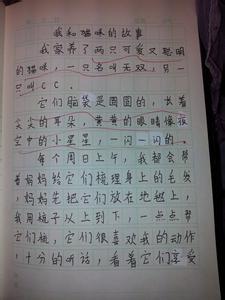 我和猫咪的故事
我家养了两只可爱又聪明
的猫咪，一只名叫无双，另一
只叫CC。
它们脑袋是圆圆的，长着
尖尖的耳朵，黄黄的眼睛像夜
空中的小星星，一闪一闪的。
每个周日上午，我都会帮
着妈妈给它们梳理身上的毛发，
妈妈先把它们放在地毯上，
我用梳子从上到下，一点点帮
它们梳，它们很喜欢我的动作，
十分的听话，看着它们亲爱